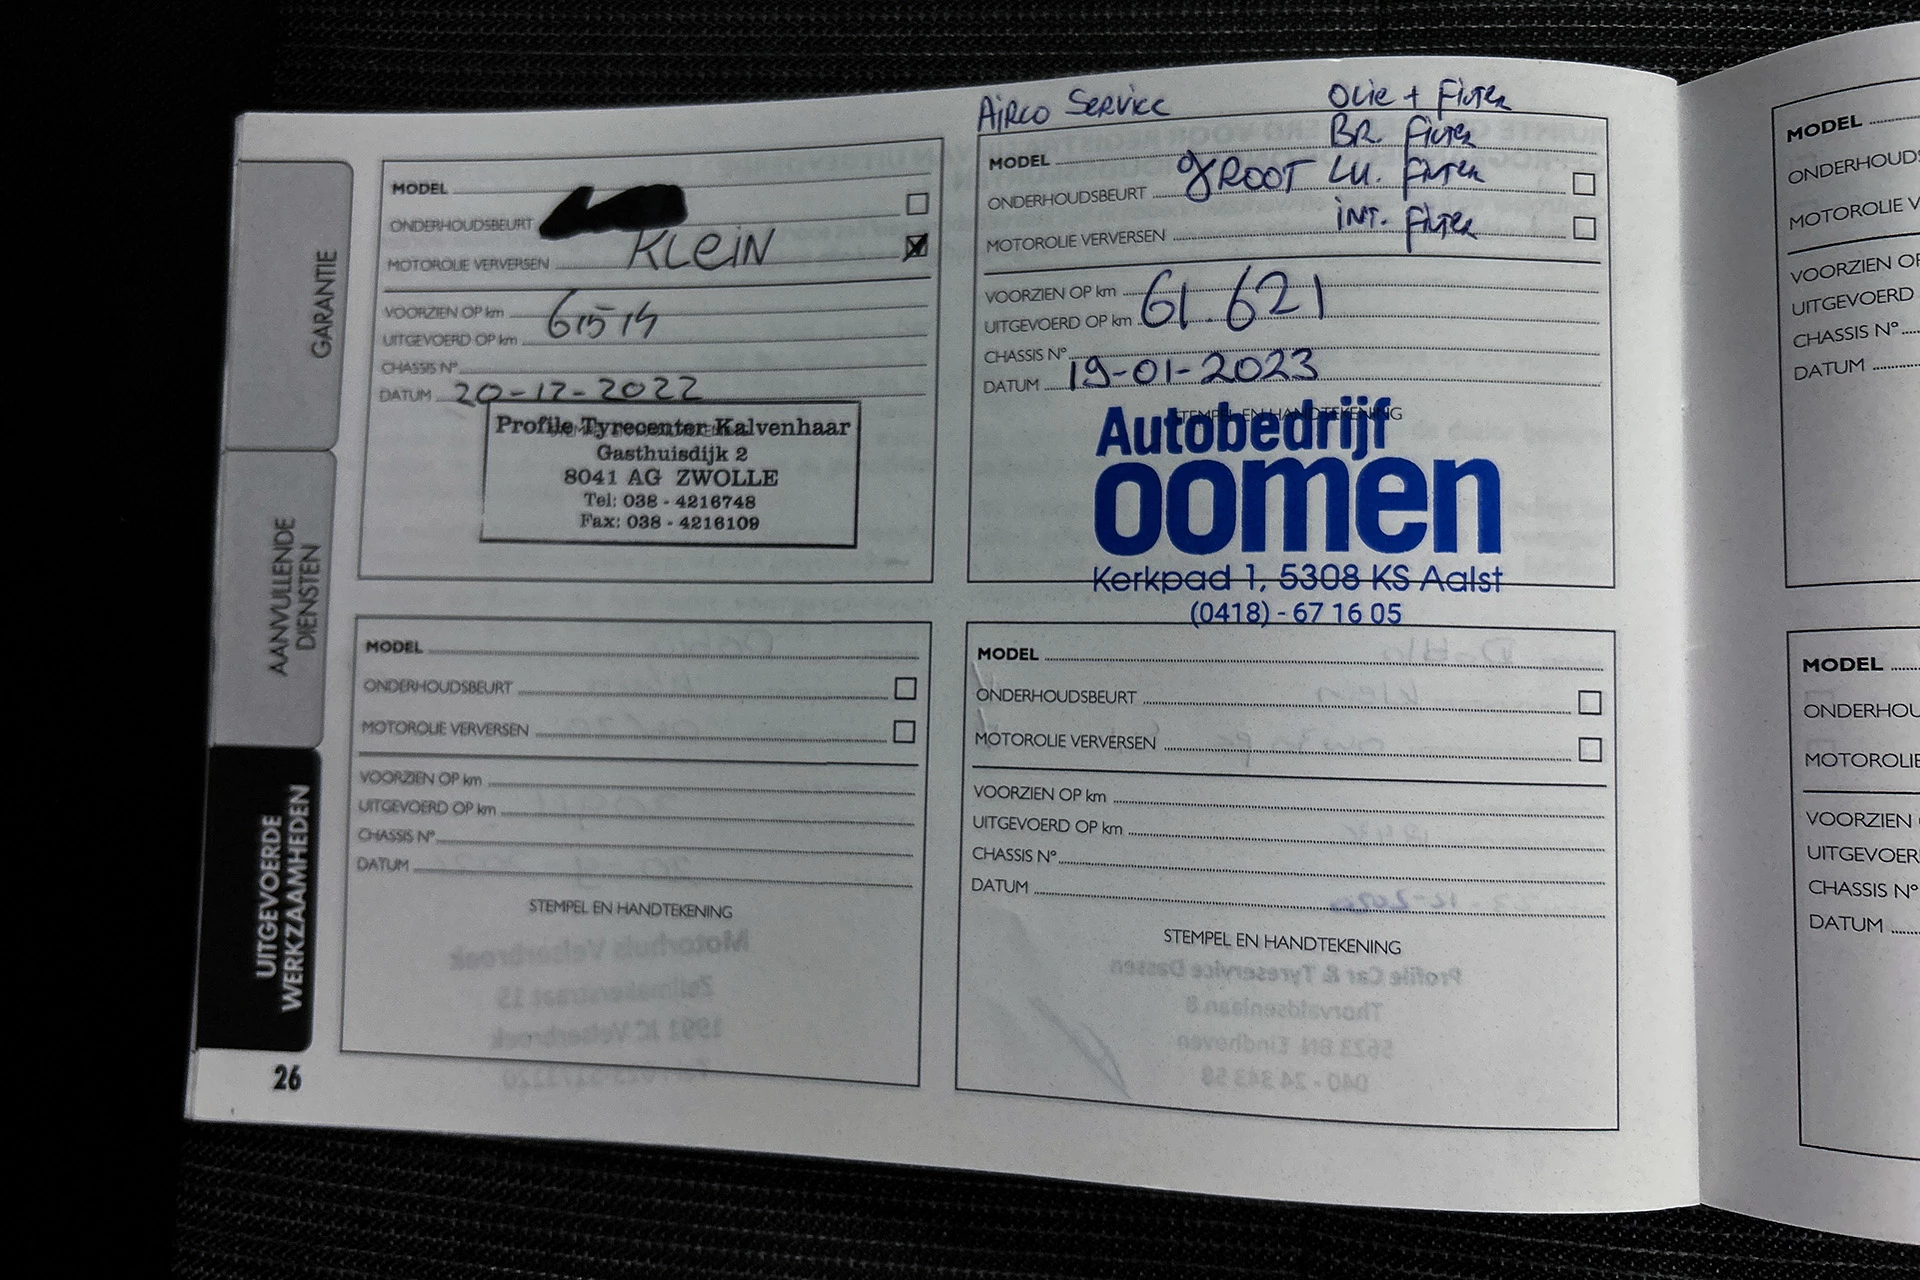 GARANTIE
AANVULLENDE
DIENSTEN
UITGEVOERDE
WERKZAAMHEDEN
26
MODEL
ONDERHOUDSBEURT
MOTOROLIE VERVERSEN KLEIN
VOORZIEN OP km
UITGEVOERD OP km
CHASSIS N°
DATUM 20-12-2022
Profile Tyrecenter Kalvenhaar
Gasthuisdijk 2
8041 AG ZWOLLE
Tel: 038 - 4216748
Fax: 038 - 4216109
AIRCO SERVICE OLIE + FILTER
BR. FILTER
MODEL
ONDERHOUDSBEURT GROOT LU. FILTER
INT. FILTER
MOTOROLIE VERVERSEN
VOORZIEN OP km
UITGEVOERD OP km 61.621
CHASSIS N°
DATUM 19-01-2023
STEMPEL EN HANDTEKENING
Autobedrijf
oomen
Kerkpad 1, 5308 KS Aalst
(0418) - 67 16 05
MODEL
ONDERHOUDSBEURT
MOTOROLIE VERVERSEN
VOORZIEN OP km
UITGEVOERD OP km
CHASSIS N°
DATUM
STEMPEL EN HANDTEKENING
MODEL
ONDERHOUDSBEURT
MOTOROLIE VERVERSEN
VOORZIEN OP km
UITGEVOERD OP km
CHASSIS N°
DATUM
STEMPEL EN HANDTEKENING
MODEL
ONDERHOUDS
MOTOROLIE V
VOORZIEN OP
UITGEVOERD
CHASSIS N°
DATUM
MODEL
ONDERHOU
MOTOROLIE
VOORZIEN
UITGEVOER
CHASSIS N°
DATUM